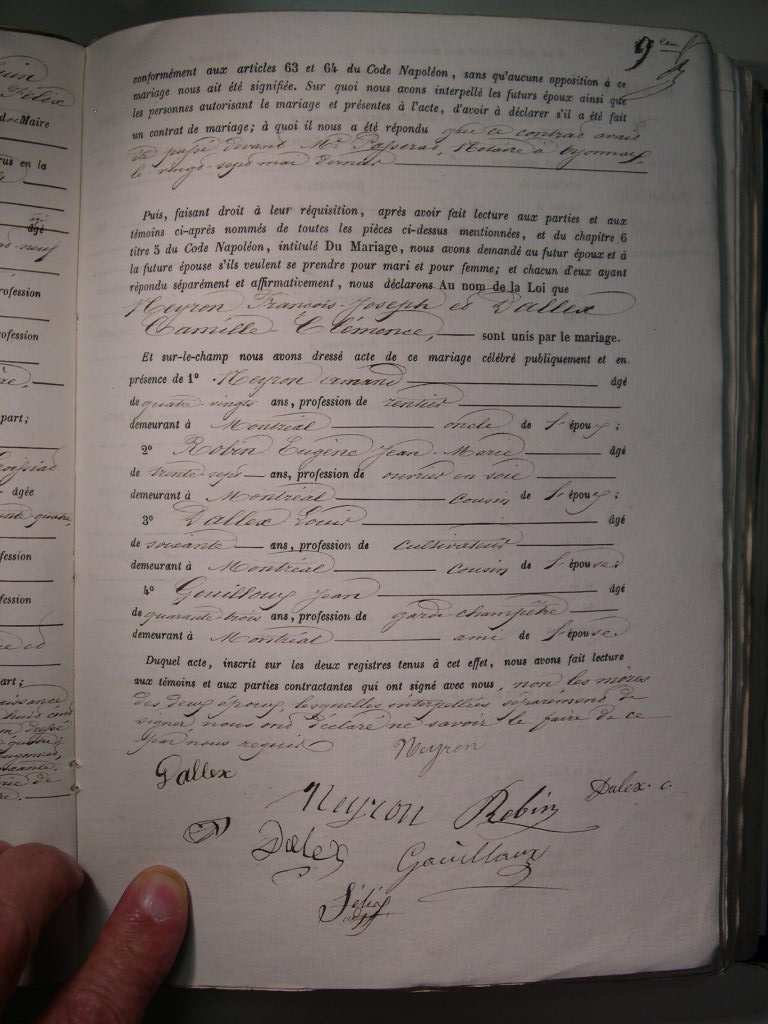 uin
Félix
9
d. le Maire
rus en la
âgé
rofession
ofession
part ;
âgée
fession
fession
part ;
conformément aux articles 63 et 64 du Code Napoléon, sans qu'aucune opposition à ce
mariage nous ait été signifiée. Sur quoi nous avons interpellé les futurs époux ainsi que
les personnes autorisant le mariage et présentes à l'acte, d'avoir à déclarer s'il a été fait
un contrat de mariage; à quoi il nous a été répondu que ce contrat avait
été passé devant Me Notaire à Oyonnax
le vingt-sept mai dernier
Puis, faisant droit à leur réquisition, après avoir fait lecture aux parties et aux
témoins ci-après nommés de toutes les pièces ci-dessus mentionnées, et du chapitre 6
titre 5 du Code Napoléon, intitulé Du Mariage, nous avons demandé au futur époux et à
la future épouse s'ils veulent se prendre pour mari et pour femme; et chacun d'eux ayant
répondu séparément et affirmativement, nous déclarons Au nom de la Loi que
Neyron François-Joseph et Dallex
Camille Clémence, sont unis par le mariage.
Et sur-le-champ nous avons dressé acte de ce mariage célébré publiquement et en
présence de 1º Neyron Armand âgé
de quatre-vingts ans, profession de rentier
demeurant à Montréal oncle de l'époux ;
2º Robin Eugène Jean-Marie âgé
de trente-sept ans, profession de ouvrier en soie
demeurant à Montréal cousin de l'époux ;
3º Dallex Louis âgé
de soixante ans, profession de cultivateur
demeurant à Montréal cousin de l'épouse ;
4º Gouilloux Jean âgé
de quarante-trois ans, profession de garde-champêtre
demeurant à Montréal ami de l'épouse
Duquel acte, inscrit sur les deux registres tenus à cet effet, nous avons fait lecture
aux témoins et aux parties contractantes qui ont signé avec nous, non les mères
des deux époux, lesquelles interpellées séparément de
signer nous ont déclaré ne savoir le faire de ce
par nous requis
Neyron
Dallex
Neyron Robin Dalex. c.
Dalex Gouilloux
Félix